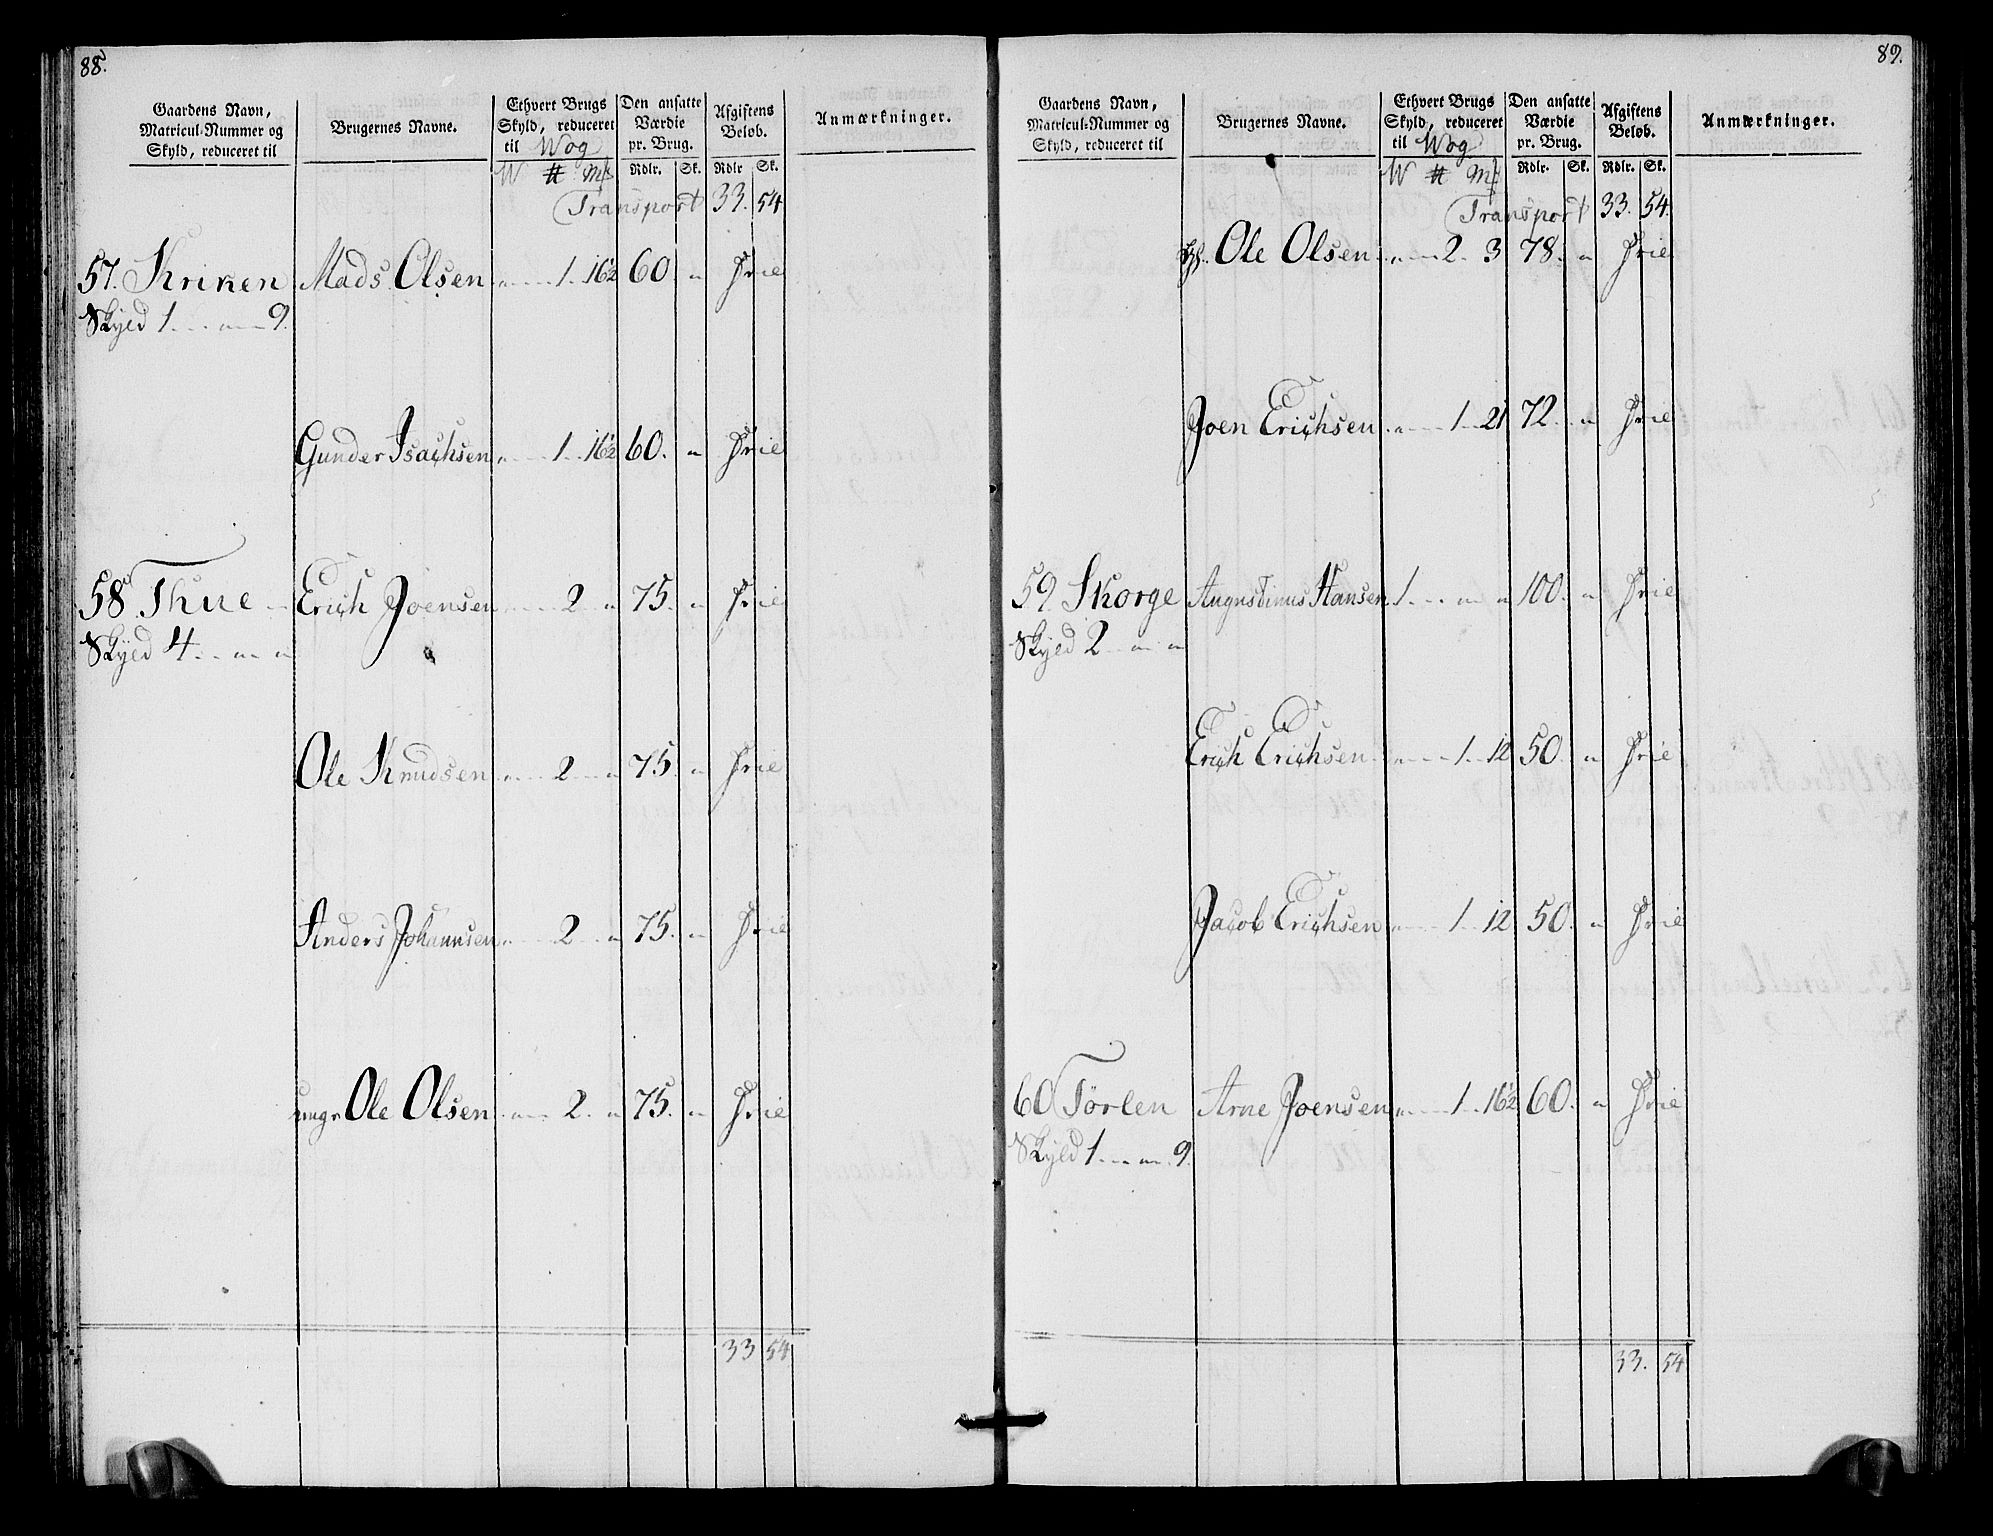 88.
Gaardens Navn, Matricul-Nummer og Skyld, reduceret til
Brugernes Navne.
Ethvert Brugs Skyld, reduceret til Wog
Den ansatte Værdie pr. Brug.
Afgiftens Beløb.
Anmærkninger.
W # Mk Rdlr. Sk. Rdlr Sk.
Transport 33. 54
57. Kriken Mads Olsen " 1 16½ 60 " Frie
Skyld 1 " 9.
Gunder Isachsen " 1 16½ 60. " Frie
58 Thue Erich Joensen " 2 " 75. " Frie
Skyld 4 " "
Ole Knudsen " 2 " 75. " Frie
Anders Johannsen " 2 " 75. " Frie
unge Ole Olsen " 2 " 75. " Frie
33 54
89.
Gaardens Navn, Matricul-Nummer og Skyld, reduceret til
Brugernes Navne.
Ethvert Brugs Skyld, reduceret til Wog
Den ansatte Værdie pr. Brug.
Afgiftens Beløb.
Anmærkninger.
W # Mk Rdlr. Sk. Rdlr. Sk.
Transport 33. 54.
Ole Olsen " 2 3 78. " Frie
Joen Erichsen " 1 21 72. " Frie
59 Skorge Augustinus Hansen 1 " " 100. " Frie
Skyld 2 " "
Erich Erichsen " 1 12 50. " Frie
Jacob Erichsen " 1 12 50. " Frie
60 Törlen Arne Joensen " 1 16½ 60. " Frie
Skyld 1 " 9.
33. 54